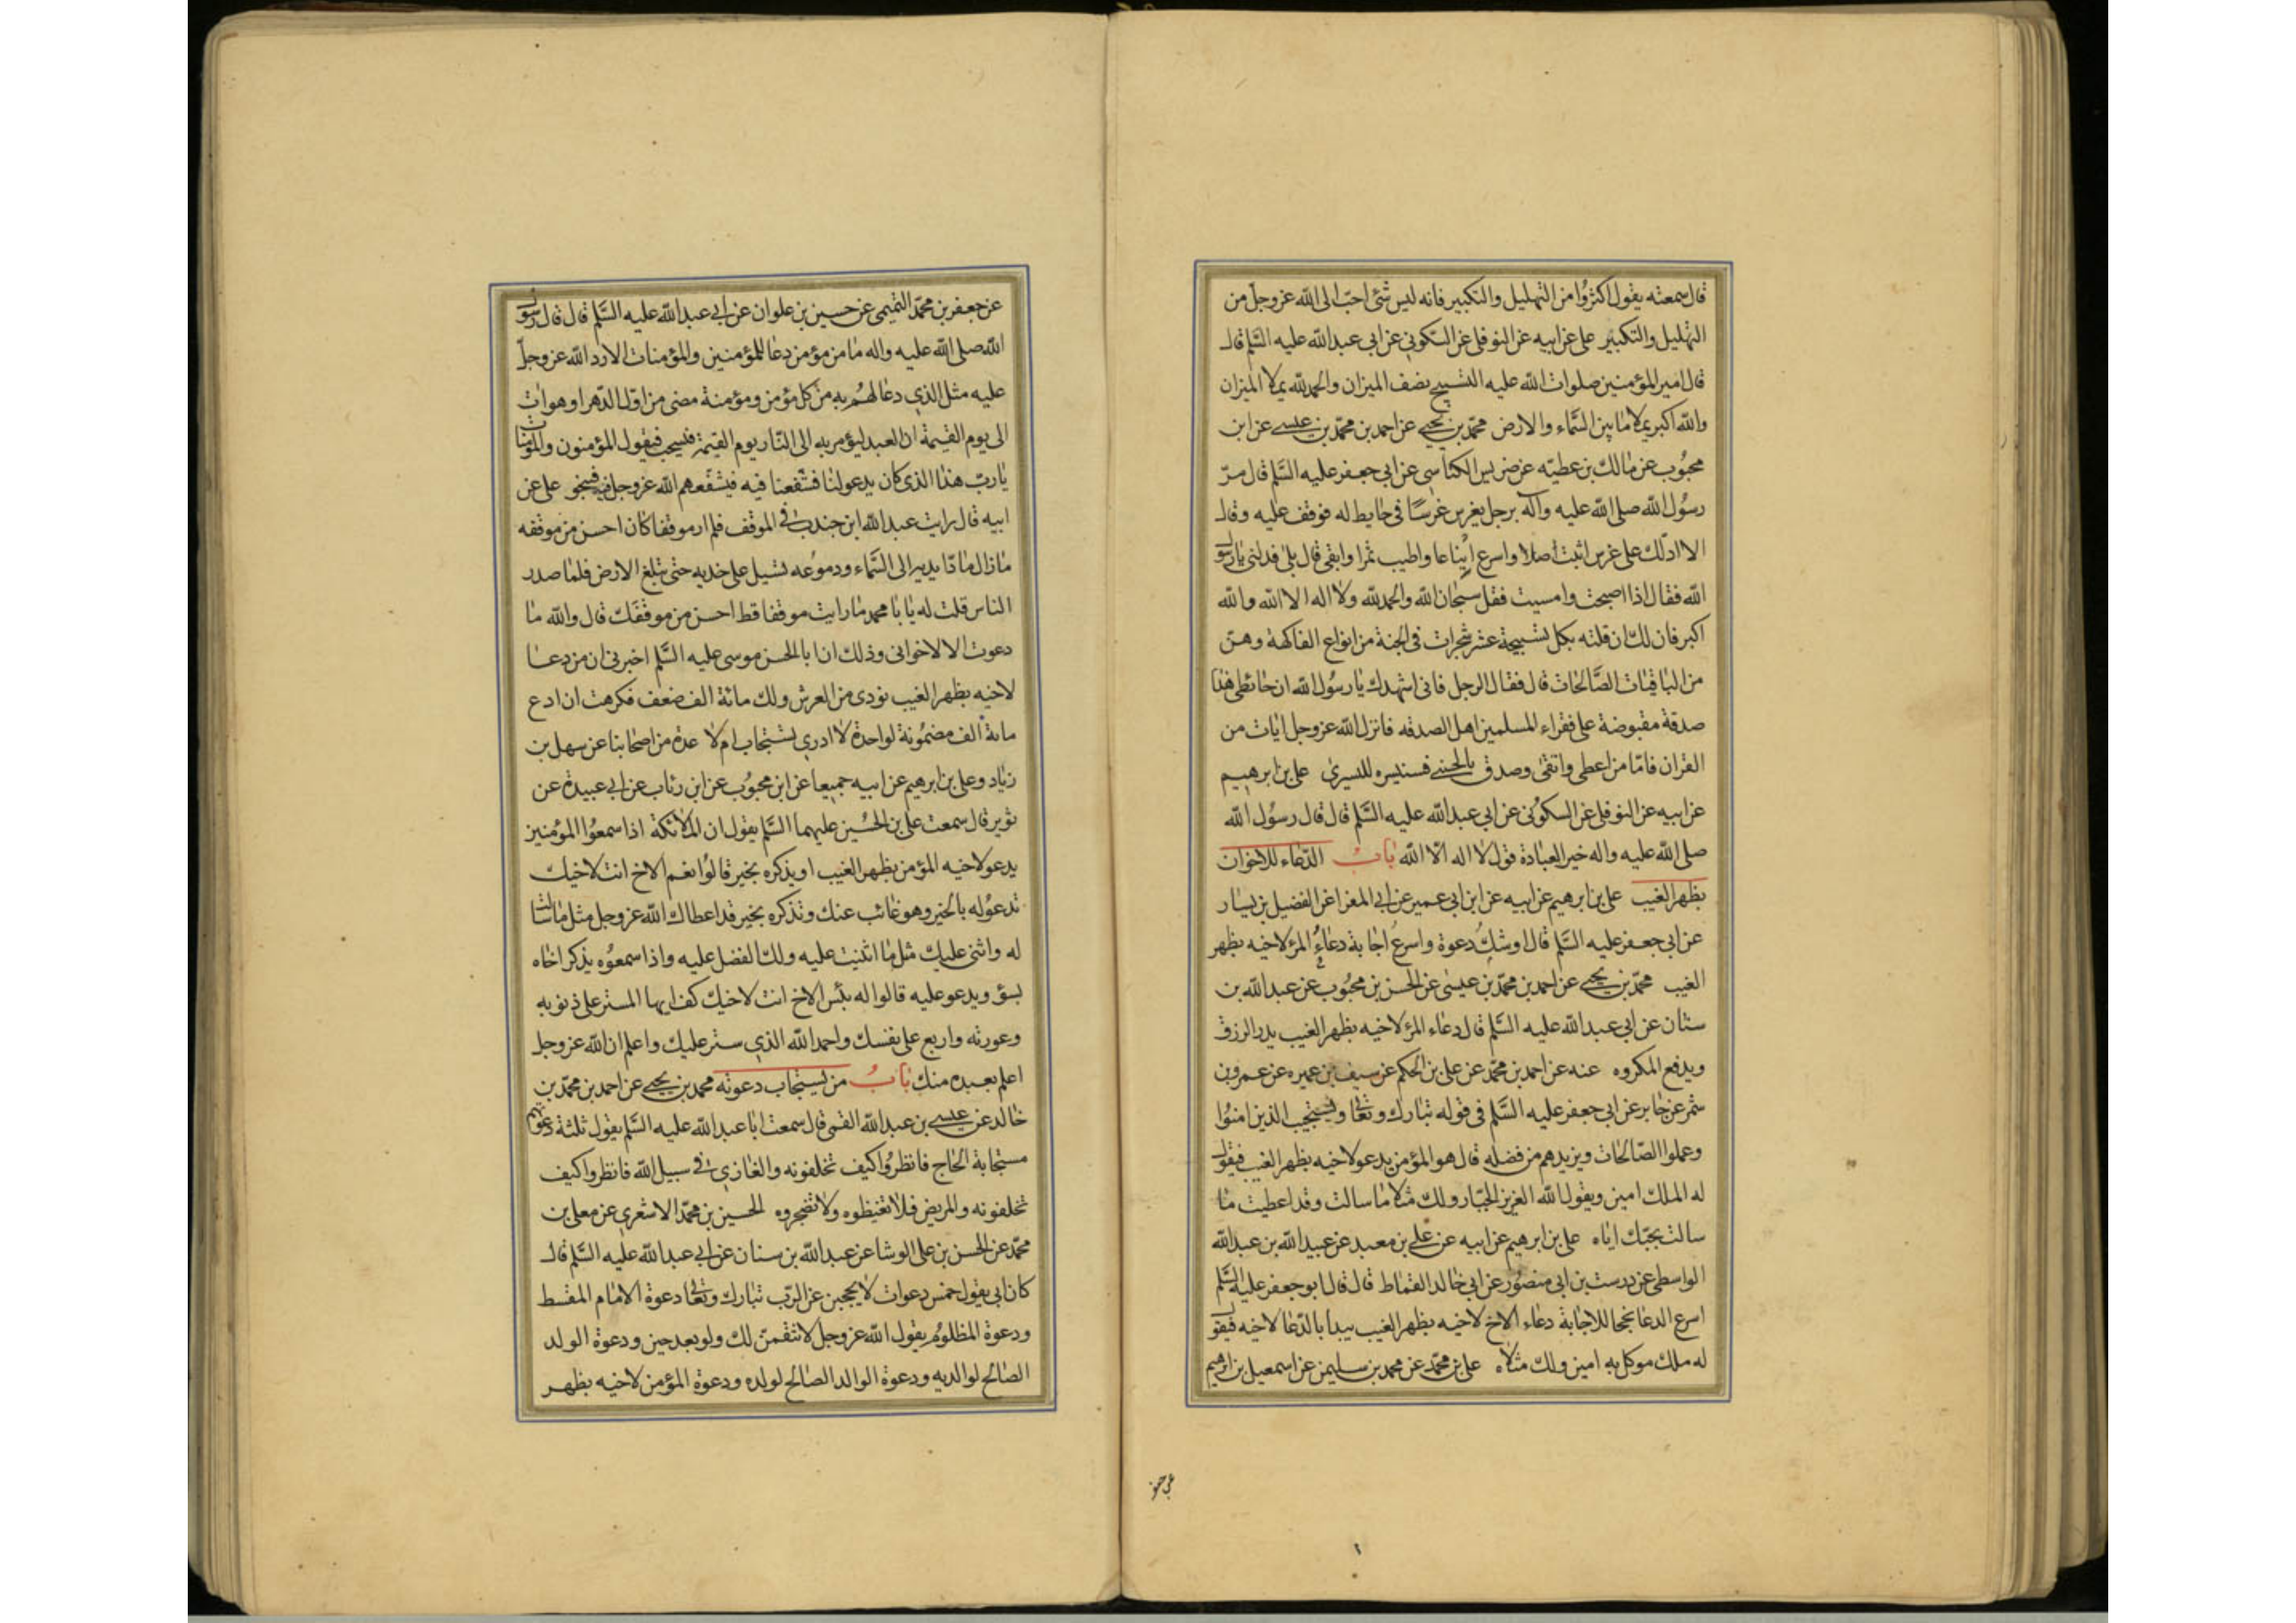 قال سمعته يقول اكثروا من التهليل والتكبير فانه ليس شئ احب الى الله عز وجل من
التهليل والتكبير علي عن ابيه عن النوفلي عن السكوني عن ابي عبد الله عليه السلم قال
قال امير المؤمنين صلوات الله عليه التسبيح نصف الميزان والحمد لله يملا الميزان
والله اكبر يملا ما بين السماء والارض محمد بن يحيى عن احمد بن محمد بن عيسى عن ابن
محبوب عن مالك بن عطيه عن ضريس الكناسي عن ابي جعفر عليه السلم قال مر
رسول الله صلى الله عليه وآله برجل يغرس غرسا في حايط له فوقف عليه وقال
الا ادلك على غرس اثبت اصلا واسرع ايناعا واطيب ثمرا وابقى قال بلى فدلني يا رسول
الله فقال اذا اصبحت وامسيت فقل سبحان الله والحمد لله ولا اله الا الله والله
اكبر فان لك ان قلته بكل تسبيحة عشر شجرات في الجنة من انواع الفاكهة وهن
من الباقيات الصالحات قال فقال الرجل فاني اشهدك يا رسول الله ان حائطي هذا
صدقة مقبوضة على فقراء المسلمين اهل الصدقه فانزل الله عز وجل ايات من
القران فاما من اعطى واتقى وصدق بالحسنى فسنيسره لليسرى علي بن ابرهيم
عن ابيه عن النوفلي عن السكوني عن ابي عبد الله عليه السلم قال قال رسول الله
صلى الله عليه واله خير العبادة قول لا اله الا الله باب الدعاء للاخوان
بظهر الغيب علي بن ابرهيم عن ابيه عن ابن ابي عمير عن ابي المغرا عن الفضيل بن يسار
عن ابي جعفر عليه السلم قال اوشك دعوة واسرع اجابة دعاء المرء لاخيه بظهر
الغيب محمد بن يحيى عن احمد بن محمد بن عيسى عن الحسن بن محبوب عن عبد الله بن
سنان عن ابي عبد الله عليه السلم قال دعاء المرء لاخيه بظهر الغيب يدر الرزق
ويدفع المكروه عنه عن احمد بن محمد عن علي بن الحكم عن سيف بن عميره عن عمرو بن
شمر عن جابر عن ابي جعفر عليه السلم في قوله تبارك وتعالى ويستجيب الذين امنوا
وعملوا الصالحات ويزيدهم من فضله قال هو المؤمن يدعو لاخيه بظهر الغيب فيقول
له الملك امين ويقول الله العزيز الجبار ولك مثلا ما سالت وقد اعطيت ما
سالت بحبك اياه علي بن ابرهيم عن ابيه عن علي بن معبد عن عبيد الله بن عبد الله
الواسطي عن درست بن ابي منصور عن ابي خالد القماط قال قال ابو جعفر عليه السلم
اسرع الدعا نجحا للاجابة دعاء الاخ لاخيه بظهر الغيب يبدا بالدعا لاخيه فيقول
له ملك موكل به امين ولك مثلاه علي بن محمد عن محمد بن سليمن عن اسمعيل بن ابرهيم
عن جعفر
عن جعفر بن محمد التميمي عن حسين بن علوان عن ابي عبد الله عليه السلم قال قال رسول
الله صلى الله عليه واله ما من مؤمن دعا للمؤمنين والمؤمنات الا رد الله عز وجل
عليه مثل الذي دعا لهم به من كل مؤمن ومؤمنة مضى من اول الدهر او هو ات
الى يوم القيمة ان العبد ليؤمر به الى النار يوم القيمة فيسحب فيقول المؤمنون والمؤمنات
يا رب هذا الذي كان يدعو لنا فشفعنا فيه فيشفعهم الله عز وجل فيه فينجو علي عن
ابيه قال رايت عبد الله ابن جندب في الموقف فلم ار موقفا كان احسن من موقفه
ما زال مادا يديه الى السماء ودموعه تسيل على خديه حتى تبلغ الارض فلما صدر
الناس قلت له يا با محمد ما رايت موقفا قط احسن من موقفك قال والله ما
دعوت الا لاخواني وذلك ان ابا الحسن موسى عليه السلم اخبرني ان من دعا
لاخيه بظهر الغيب نودي من العرش ولك مائة الف ضعف فكرهت ان ادع
مائة الف مضمونة لواحدة لا ادري تستجاب ام لا عدة من اصحابنا عن سهل بن
زياد وعلي بن ابرهيم عن ابيه جميعا عن ابن محبوب عن ابن رئاب عن ابي عبيدة عن
ثوير قال سمعت علي بن الحسين عليهما السلم يقول ان الملائكة اذا سمعوا المؤمنين
يدعو لاخيه المؤمن بظهر الغيب او يذكره بخير قالوا نعم الاخ انت لاخيك
تدعو له بالخير وهو غائب عنك وتذكره بخير قد اعطاك الله عز وجل مثل ما سالت
له واثنى عليك مثل ما اثنيت عليه ولك الفضل عليه واذا سمعوه يذكر اخاه
بسوء ويدعو عليه قالوا له بئس الاخ انت لاخيك كف ايها المستر على ذنوبه
وعورته واربع على نفسك واحمد الله الذي ستر عليك واعلم ان الله عز وجل
اعلم بعبده منك باب من يستجاب دعوته محمد بن يحيى عن احمد بن محمد بن
خالد عن عيسى بن عبد الله القمي قال سمعت ابا عبد الله عليه السلم يقول ثلثة دعوتهم
مستجابة الحاج فانظروا كيف تخلفونه والغازي في سبيل الله فانظروا كيف
تخلفونه والمريض فلا تغيظوه ولا تضجروه الحسين بن محمد الاشعري عن معلى بن
محمد عن الحسن بن علي الوشا عن عبد الله بن سنان عن ابي عبد الله عليه السلم قال
كان ابي يقول خمس دعوات لا يحجبن عن الرب تبارك وتعالى دعوة الامام المقسط
ودعوة المظلوم يقول الله عز وجل لانتقمن لك ولو بعد حين ودعوة الولد
الصالح لوالديه ودعوة الوالد الصالح لولده ودعوة المؤمن لاخيه بظهر